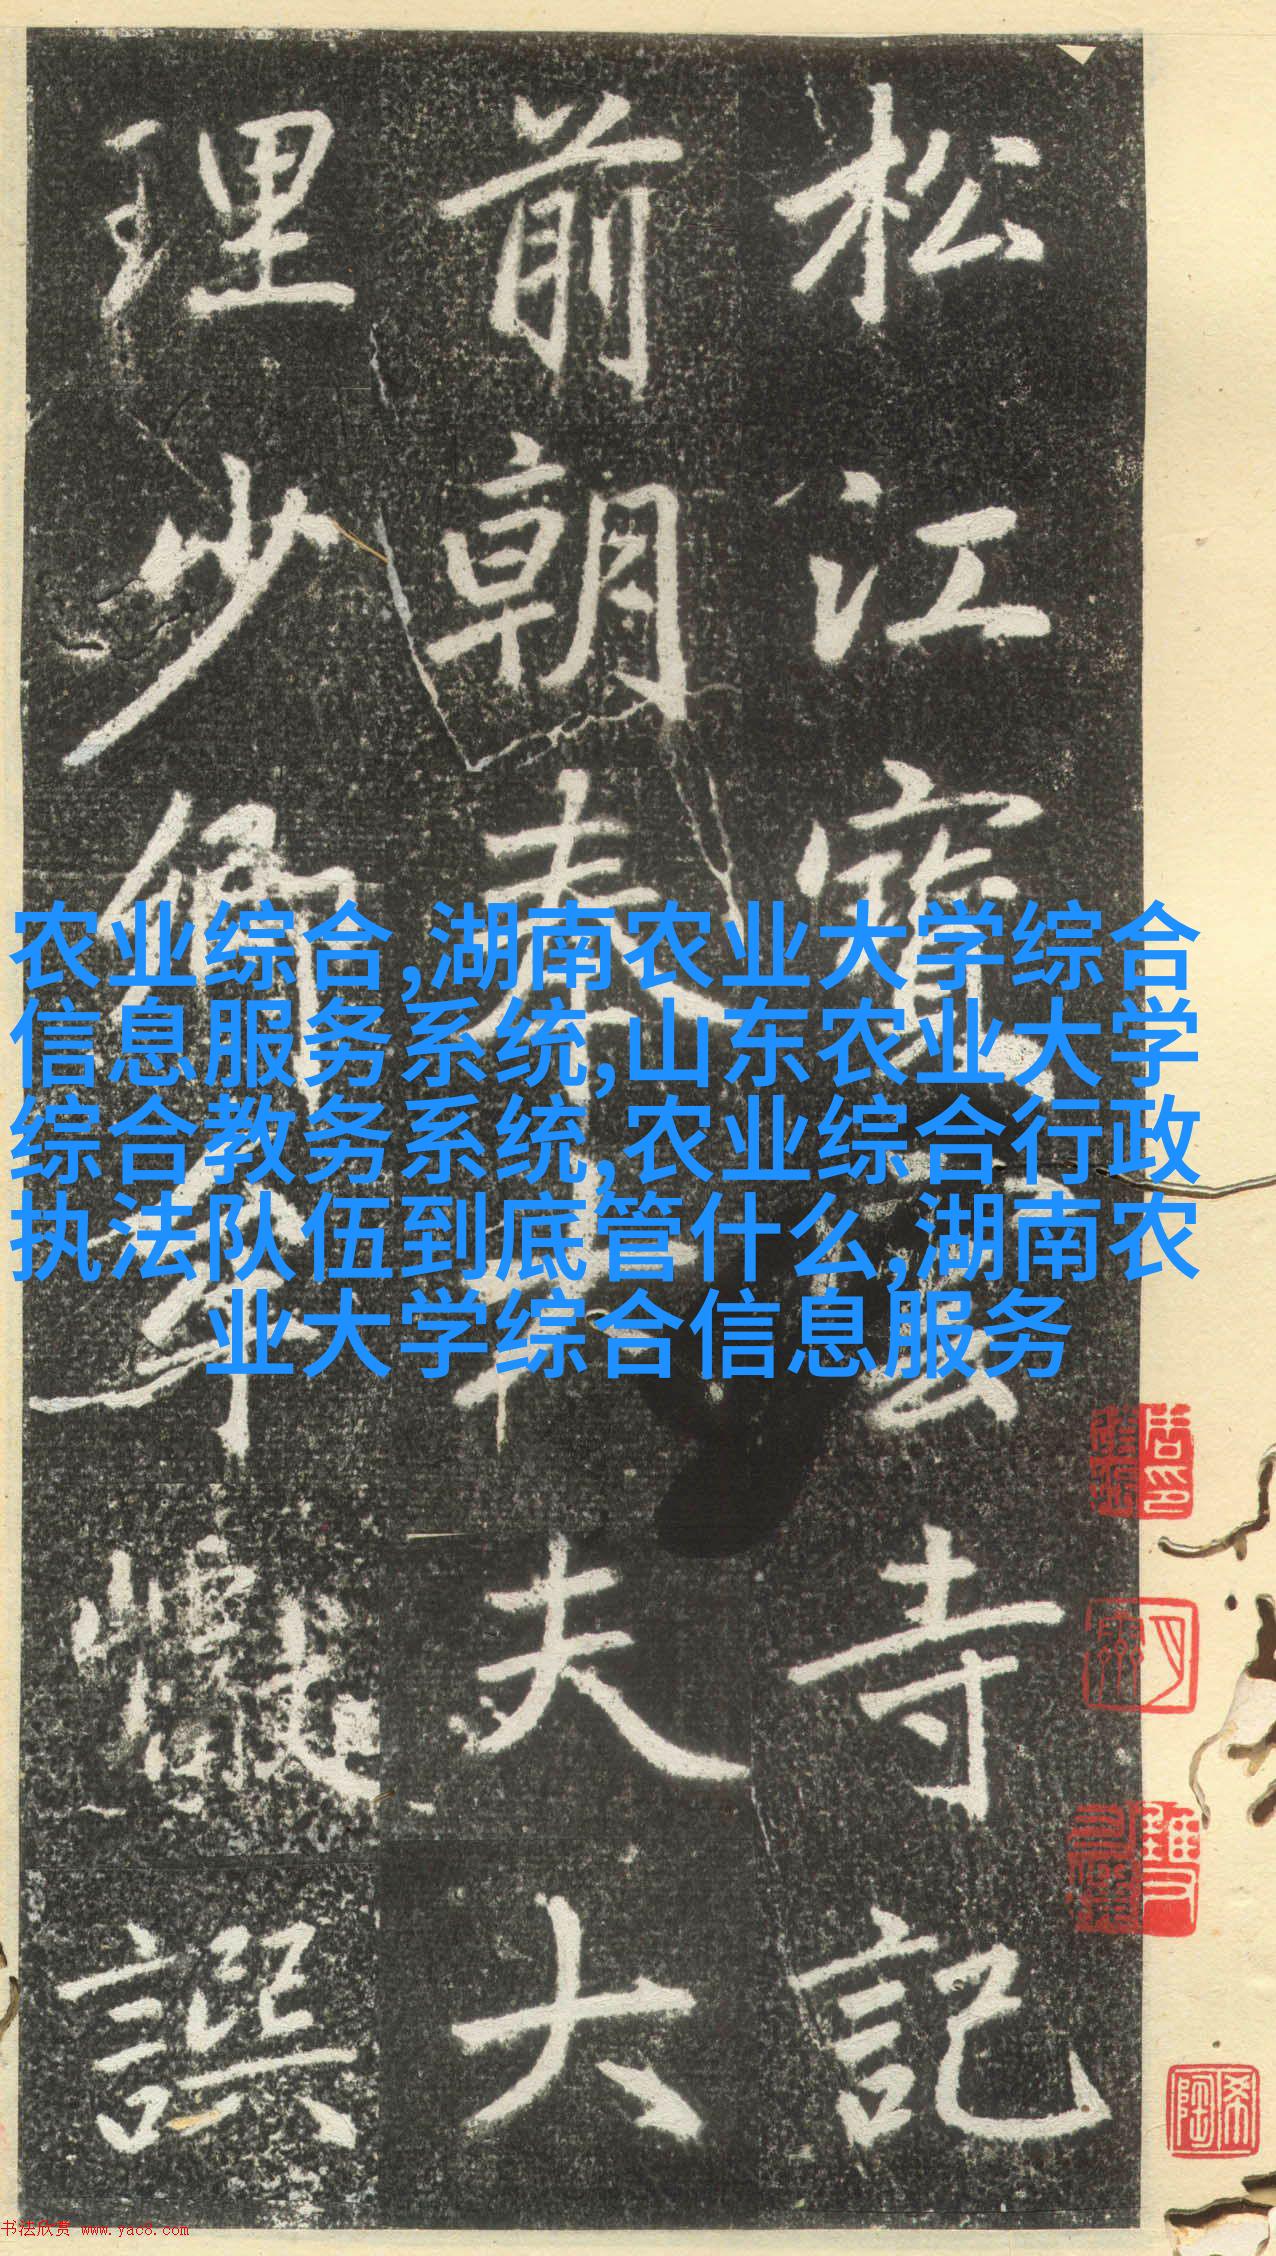 松江寶雲寺記
前朝奉夫大
理少卿牟譔
农业综合,湖南农业大学综合
信息服务系统,山东农业大学
综合教务系统,农业综合行政
执法队伍到底管什么,湖南农
业大学综合信息服务
希陶
书法欣赏 www.yac8.com